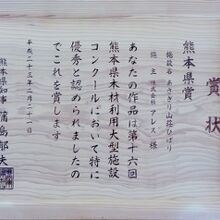 賞状
熊本県賞
施設名 あさぎり山荘ひばり
施主 株式会社アレス 様
あなたの作品は第十六回
熊本県木材利用大型施設
コンクールにおいて特に
優秀と認められましたの
でこれを賞します
平成二十三年二月二十一日
熊本県知事 蒲島郁夫